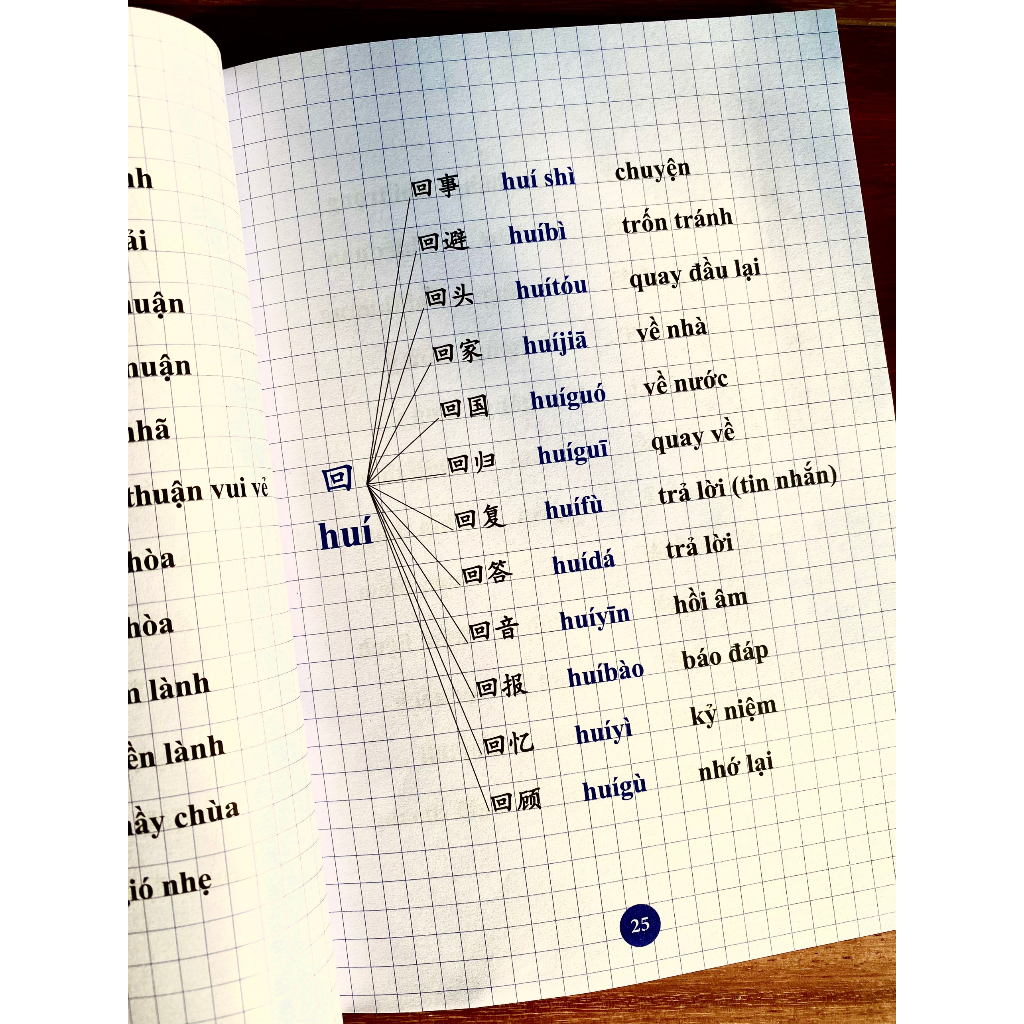 lành
thuận vui vẻ
hòa
hòa
lành
lành
chùa
nhẹ
回事 huí shì chuyện
回避 huíbì trốn tránh
回头 huítóu quay đầu lại
回家 huíjiā về nhà
回国 huíguó về nước
回归 huíguī quay về
回
huí
回复 huífù trả lời (tin nhắn)
回答 huídá trả lời
回音 huíyīn hồi âm
回报 huíbào báo đáp
回忆 huíyì kỷ niệm
回顾 huígù nhớ lại
25